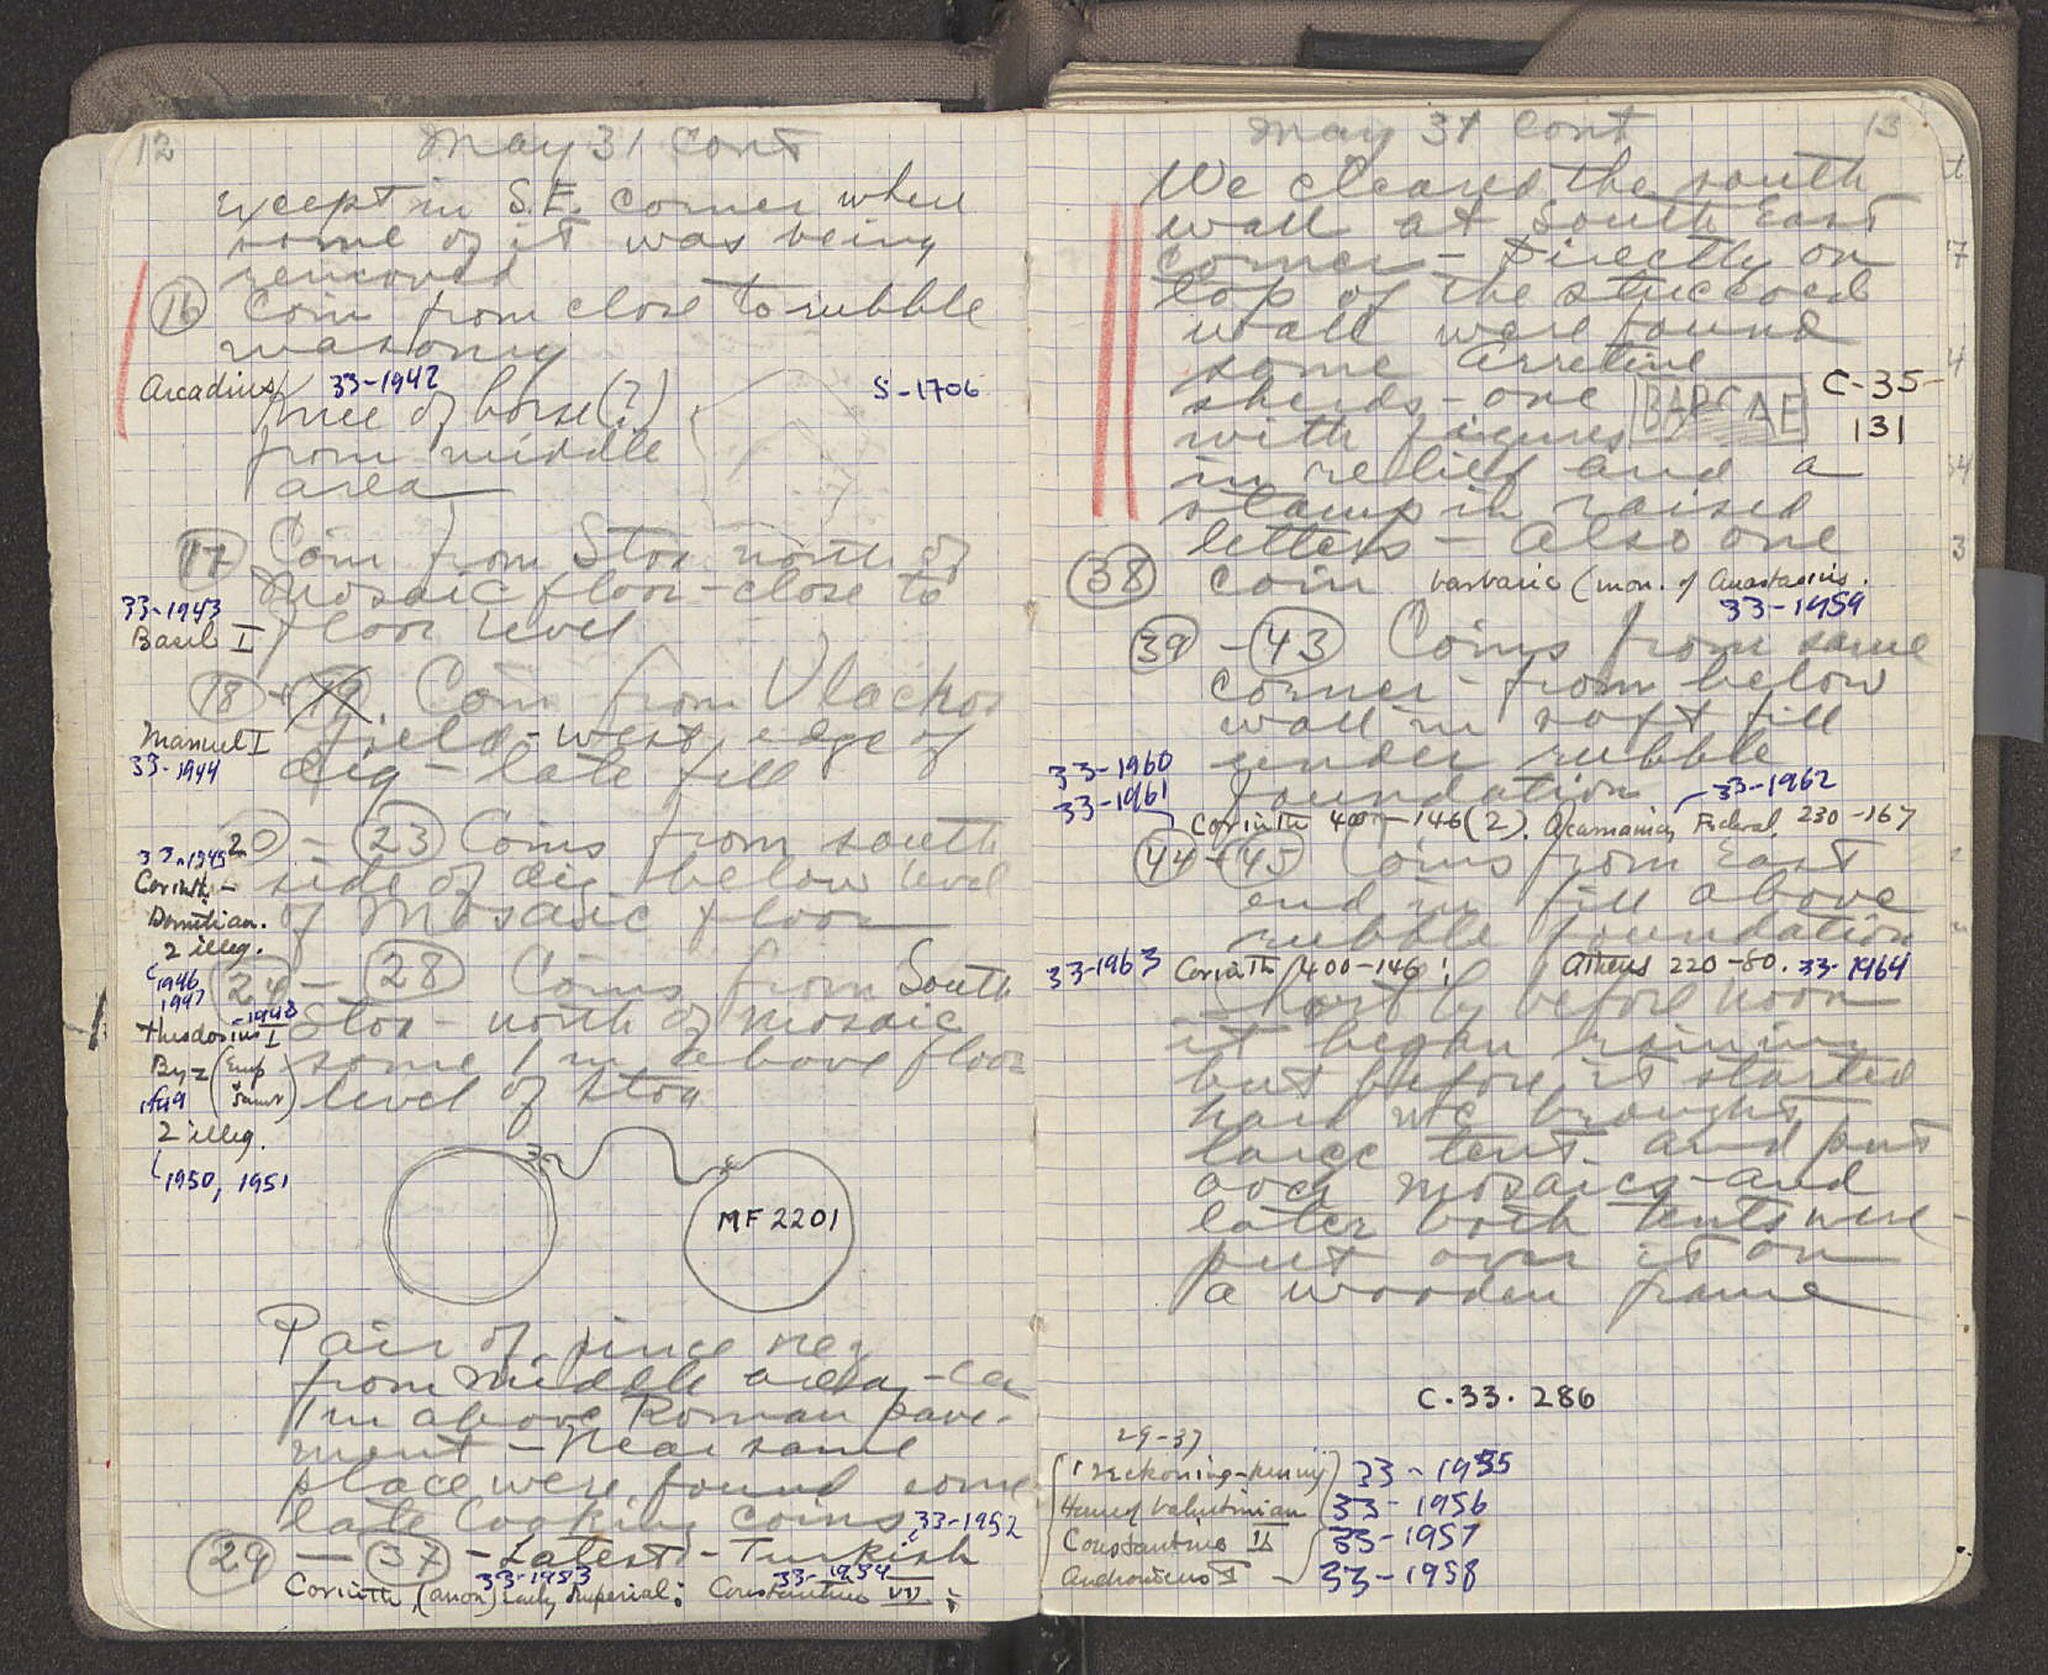 12 May 31 Cont
except in S.E. corner where
some of it was being
removed
16 Coin from close to rubble
masonry
Arcadius 33-1942
Knee of horse(?) S-1706
from middle
area
17 Coin from Stoa north of
Mosaic floor - close to
33-1943
floor level
Basil I
18 + 19. Coin from Vlachos
field - west edge of
Manuel I
dig - late fill
33-1944
20 - 23 Coins from south
33-1945
side of dig below level
Corinth -
of Mosaic floor
Domitian.
2 illeg.
1946
1947
24 - 28 Coins from South
-1948
Stoa - north of mosaic
Theodosius I
some 1 m above floor
Byz (Emp
level of Stoa
1949
2 illeg.
1950, 1951
MF 2201
Pair of
from middle area - ca
1 m above Roman pave-
ment - Near same
place were found some
late looking coins 33-1952
29 - 37 - Latest - Turkish
33-1953 33-1954
Corinth, (anon) Early Imperial: Constantine VII :
May 31 Cont 13
We cleared the south
wall at South East
corner - Directly on
top of the stuccoed
wall were found
some Arretine
sherds - one BARCAE C-35-
with figures 131
in relief and a
stamp in raised
letters - Also one
38 coin barbaric (mon. of Anastasius.
33-1959
39 - 43 Coins from same
corner - from below
wall in soft fill
under rubble
33-1960
foundation 33-1962
33-1961
Corinth 400-146 (2). Acarnania, Federal. 230-167
44 + 45 Coins from East
end in fill above
rubble foundation
33-1963 Corinth 400-146! Athens 220-80. 33-1964
Shortly before noon
it began raining
but before it started
hard we brought
large tent and put
over mosaics - and
later both tents were
put over it on
a wooden frame
C.33.286
29-37
1 reckoning-penny 33-1955
House of Valentinian 33-1956
Constantine II 33-1957
Andronicus I 33-1958